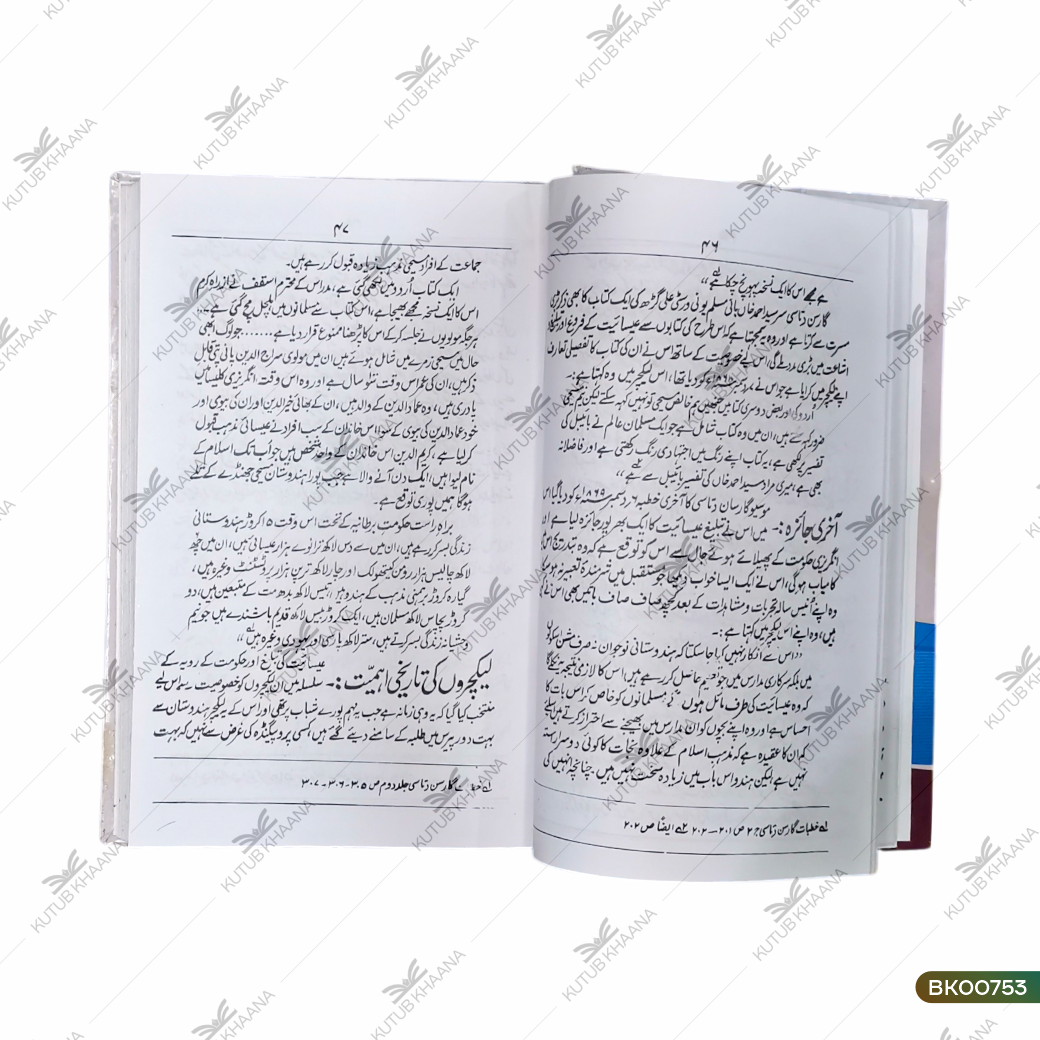 ۴۶
ہے مجھے اس کا ایک نسخہ پہونچ چکا ہے لہ ،،
گارسن دتاسی سرسید احمد خاں بانی مسلم یونی ورسٹی علی گڑھ کی ایک کتاب کا بھی ذکر بڑی
مسرت سے کرتا ہے اور وہ یہ سمجھتا ہے کہ اس طرح کی کتابوں سے عیسائیت کے فروغ اور تبلیغ و
اشاعت میں بڑی مدد ملے گی، اسی خصوصیت کے ساتھ اس نے ان کی کتاب کا تفصیلی تعارف
اپنے لیکچر میں کرایا ہے جو اس نے ۷ دسمبر کو دیا تھا، اس لیکچر میں وہ کہتا ہے :-
اُردو کی اور بعض دوسری کتابیں جنھیں ہم خالص مسیحی تو نہیں کہہ سکتے لیکن نیم مسیحی
ضرور کہہ سکتے ہیں، ان میں وہ کتاب شامل ہے جو ایک مسلمان عالم نے بائبل کی
تفسیر پر لکھی ہے، یہ کتاب اپنے رنگ میں اجتہادی رنگ رکھتی ہے اور فاضلانہ
بھی ہے، میری مراد سید احمد خاں کی تفسیر بائبل سے ہے لہ ،،
موسیو گارساں دتاسی کا آخری خطبہ ۶ دسمبر ۱۸۶۹ء کو دیا گیا اس
آخری جائزہ :- میں اس نے تبلیغ عیسائیت کا ایک بھرپور جائزہ لیا ہے ان
انگریزی حکومت کے پھیلائے ہوئے جال سے اس کو توقع ہے کہ وہ بتدریج اس
کامیاب ہوگی، اس نے ایک ایسا خواب دیکھا جو مستقبل میں شرمندۂ تعبیر نہ ہو سکا
وہ اپنے انیس سالہ تجربات و مشاہدات کے بعد کچھ صاف صاف باتیں بھی اس نے کہی
ہیں، وہ اپنے اس لیکچر میں کہتا ہے :-
،،اس سے انکار نہیں کیا جا سکتا کہ ہندوستانی نوجوان نہ صرف مشن اسکولوں
میں بلکہ سرکاری مدارس میں جو تعلیم حاصل کر رہے ہیں اس کا لازمی نتیجہ یہ نکلے گا
کہ وہ عیسائیت کی طرف مائل ہوں گے، مسلمانوں کو خاص کر اس بات کا
احساس ہے اور وہ اپنے بچوں کو ان مدارس میں بھیجنے سے احتراز کرتے ہیں اس لئے
کہ ان کا عقیدہ ہے کہ مذہب اسلام کے علاوہ نجات کا کوئی دوسرا رستہ
نہیں ہے لیکن ہندو اس باب میں زیادہ سخت نہیں ہیں۔ چنانچہ انہیں کی
لہ خطبات گارسن دتاسی ج ۲ ص ۲۰۱ — ۲۰۲ لہ ایضاً ص ۲۰۲
۴۷
جماعت کے افراد مسیحی مذہب زیادہ قبول کر رہے ہیں۔
ایک کتاب اُردو میں لکھی گئی ہے، مدراس کے محترم اسقف نے از راہ کرم
اس کا ایک نسخہ مجھے بھیجا ہے، اس کتاب سے مسلمانوں میں ہلچل مچ گئی ہے۔
ہر جگہ مولویوں نے جلسہ کر کے اس کا پڑھنا ممنوع قرار دیا ہے........ جو لوگ ابھی
حال میں مسیحی زمرے میں شامل ہوئے ہیں ان میں مولوی سراج الدین پانی پتی قابل
ذکر ہیں، ان کی عمر اس وقت سو سال ہے اور وہ اس وقت انگریزی کلیسا میں
پادری ہیں، وہ عماد الدین کے والد ہیں، ان کے بھائی خیر الدین اور ان کی بیوی اور
خود عماد الدین کی بیوی کے سوا اس خاندان کے سب افراد نے عیسائی مذہب قبول
کر لیا ہے، کریم الدین اس خاندان کے واحد شخص ہیں جو اب تک اسلام کے
نام لیوا ہیں، ایک دن آنے والا ہے جب پورا ہندوستان مسیحی جھنڈے کے تلے
ہوگا ہمیں پوری توقع ہے۔
براہ راست حکومت برطانیہ کے تحت اس وقت ۱۵ کروڑ ہندوستانی
زندگی بسر کر رہے ہیں، ان میں سے دس لاکھ ننانوے ہزار عیسائی ہیں، ان میں چھ
لاکھ چالیس ہزار رومن کیتھولک اور چار لاکھ ترپن ہزار پروٹسٹنٹ وغیرہ ہیں،
گیارہ کروڑ برہمنی مذہب کے ہندو ہیں، تیس لاکھ بدھ مت کے متبعین ہیں، دو
کروڑ پچاس لاکھ مسلمان ہیں، ایک کروڑ بیس لاکھ قدیم باشندے ہیں جو نیم
وحشیانہ زندگی بسر کرتے ہیں، ستر لاکھ پارسی اور یہودی وغیرہ ہیں لہ ،،
عیسائیت کی تبلیغ اور حکومت کے رویہ کے
لیکچروں کی تاریخی اہمیّت :- سلسلہ میں ان لیکچروں کو خصوصیت سے اس لیے
منتخب کیا گیا کہ یہ وہی زمانہ ہے جب یہ مہم پورے شباب پر تھی اور اس کے یہ لیکچر ہندوستان سے
بہت دور پیرس میں طلبہ کے سامنے دیئے گئے ہیں، کسی پروپیگنڈہ کی غرض سے نہیں کہ بہت
لہ خطبات گارسن دتاسی جلد دوم ص ۳۰۵-۳۰۶-۳۰۷
KUTUB KHAANA
BK00753